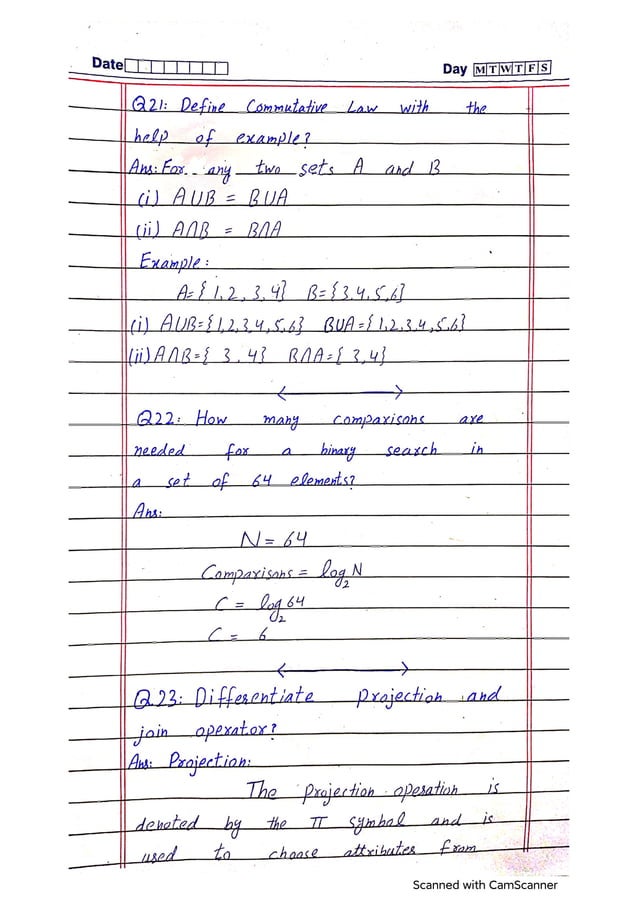 Date
Day M T W T F S
Q21: Define Commutative Law with the
help of example?
Ans: For any two sets A and B
(i) A∪B = B∪A
(ii) A∩B = B∩A
Example:
A={1,2,3,4} B={3,4,5,6}
(i) A∪B={1,2,3,4,5,6} B∪A={1,2,3,4,5,6}
(ii) A∩B={3,4} B∩A={3,4}
Q22: How many comparisons are
needed for a binary search in
a set of 64 elements?
Ans:
N = 64
Comparisons = log₂N
C = log₂64
C = 6
Q.23: Differentiate projection and
join operator?
Ans: Projection:
The projection operation is
denoted by the π symbol and is
used to choose attributes from
Scanned with CamScanner